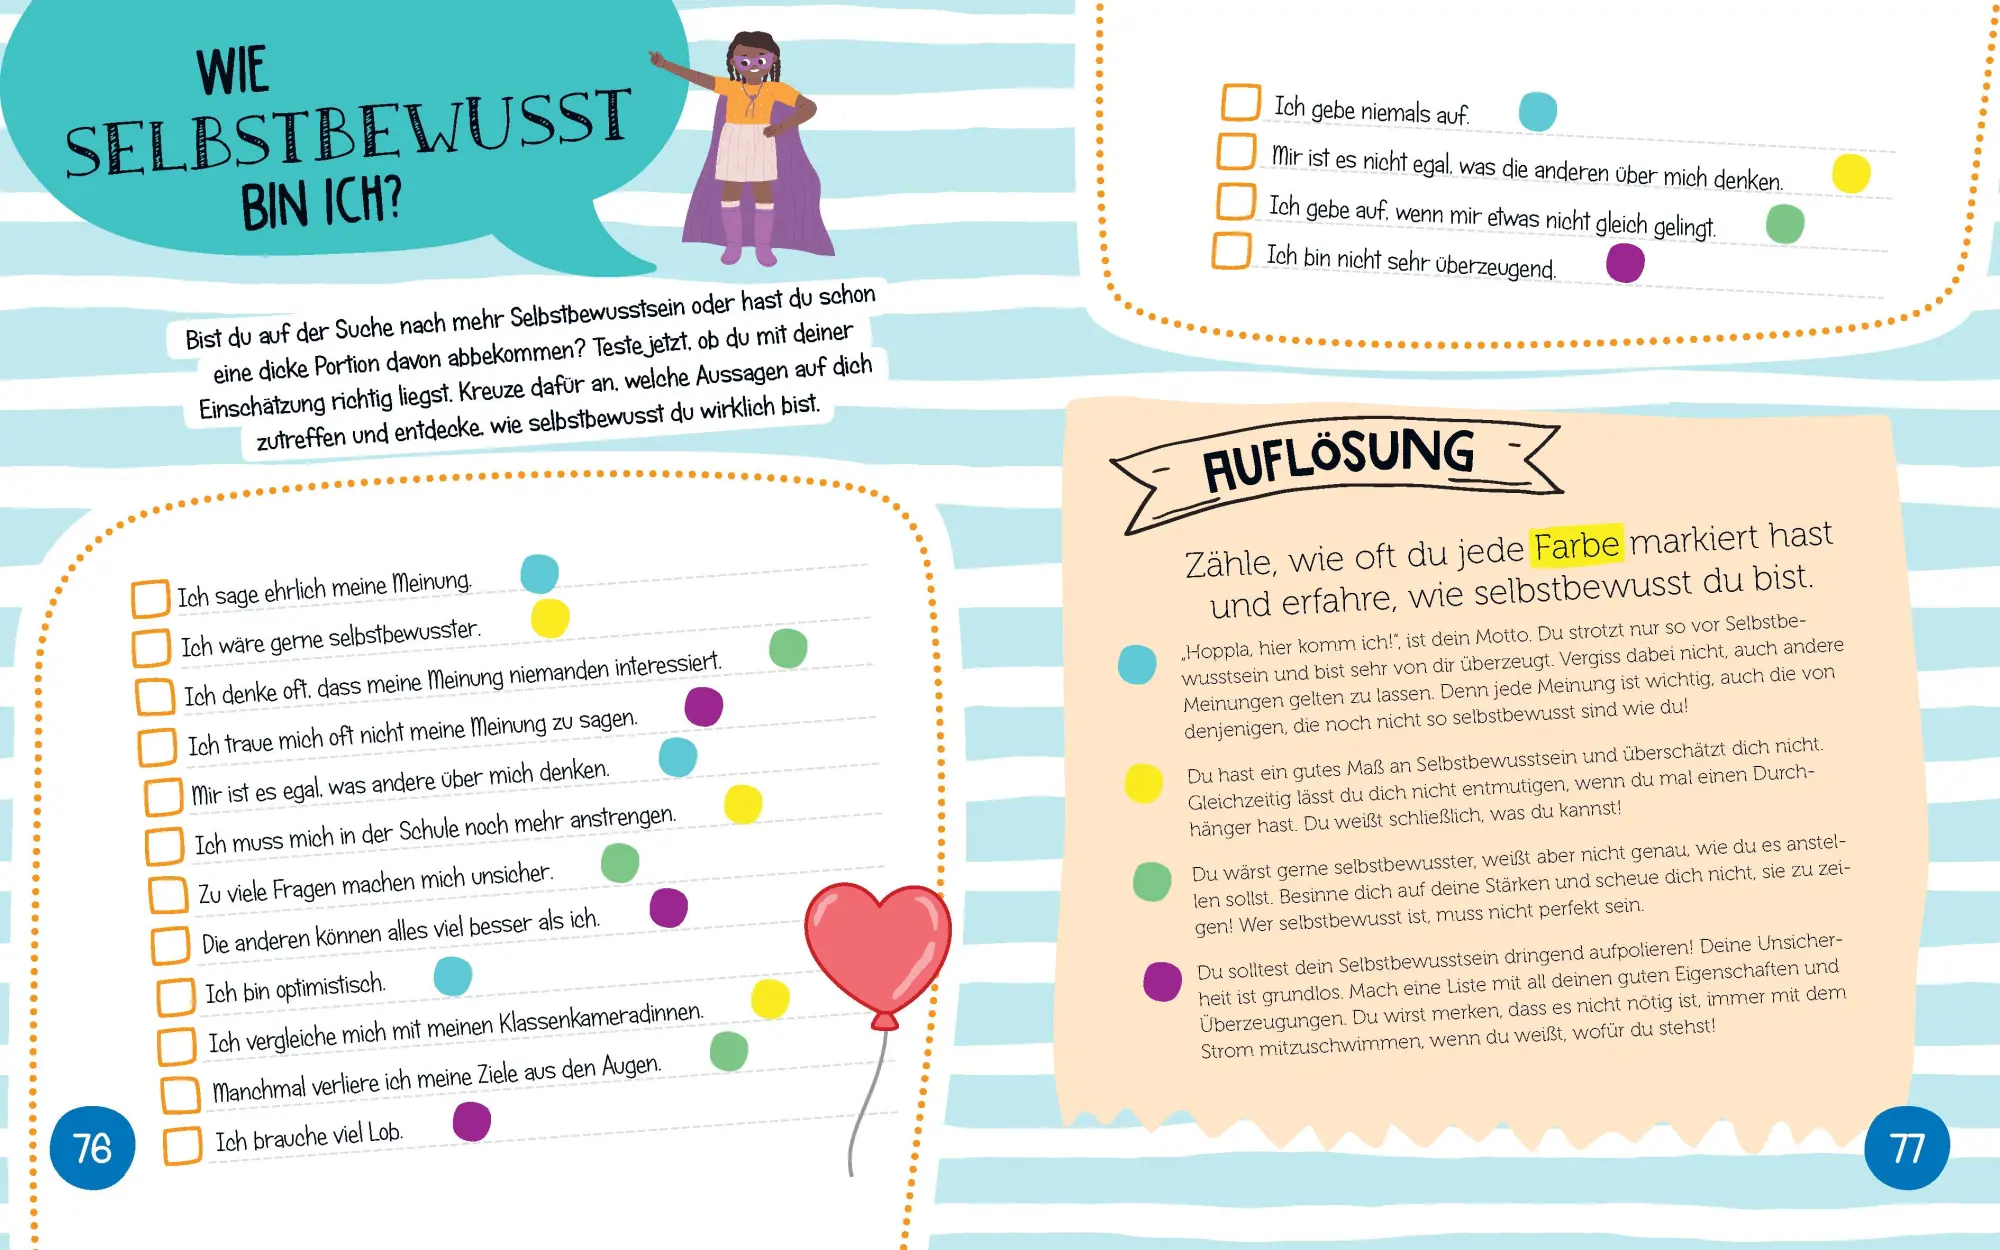 WIE
SELBSTBEWUSST
BIN ICH?
Bist du auf der Suche nach mehr Selbstbewusstsein oder hast du schon
eine dicke Portion davon abbekommen? Teste jetzt, ob du mit deiner
Einschätzung richtig liegst. Kreuze dafür an, welche Aussagen auf dich
zutreffen und entdecke, wie selbstbewusst du wirklich bist.
Ich sage ehrlich meine Meinung.
Ich wäre gerne selbstbewusster.
Ich denke oft, dass meine Meinung niemanden interessiert.
Ich traue mich oft nicht meine Meinung zu sagen.
Mir ist es egal, was andere über mich denken.
Ich muss mich in der Schule noch mehr anstrengen.
Zu viele Fragen machen mich unsicher.
Die anderen können alles viel besser als ich.
Ich bin optimistisch.
Ich vergleiche mich mit meinen Klassenkameradinnen.
Manchmal verliere ich meine Ziele aus den Augen.
Ich brauche viel Lob.
76
Ich gebe niemals auf.
Mir ist es nicht egal, was die anderen über mich denken.
Ich gebe auf, wenn mir etwas nicht gleich gelingt.
Ich bin nicht sehr überzeugend.
AUFLÖSUNG
Zähle, wie oft du jede Farbe markiert hast
und erfahre, wie selbstbewusst du bist.
„Hoppla, hier komm ich!“, ist dein Motto. Du strotzt nur so vor Selbstbe-
wusstsein und bist sehr von dir überzeugt. Vergiss dabei nicht, auch andere
Meinungen gelten zu lassen. Denn jede Meinung ist wichtig, auch die von
denjenigen, die noch nicht so selbstbewusst sind wie du!
Du hast ein gutes Maß an Selbstbewusstsein und überschätzt dich nicht.
Gleichzeitig lässt du dich nicht entmutigen, wenn du mal einen Durch-
hänger hast. Du weißt schließlich, was du kannst!
Du wärst gerne selbstbewusster, weißt aber nicht genau, wie du es anstel-
len sollst. Besinne dich auf deine Stärken und scheue dich nicht, sie zu zei-
gen! Wer selbstbewusst ist, muss nicht perfekt sein.
Du solltest dein Selbstbewusstsein dringend aufpolieren! Deine Unsicher-
heit ist grundlos. Mach eine Liste mit all deinen guten Eigenschaften und
Überzeugungen. Du wirst merken, dass es nicht nötig ist, immer mit dem
Strom mitzuschwimmen, wenn du weißt, wofür du stehst!
77